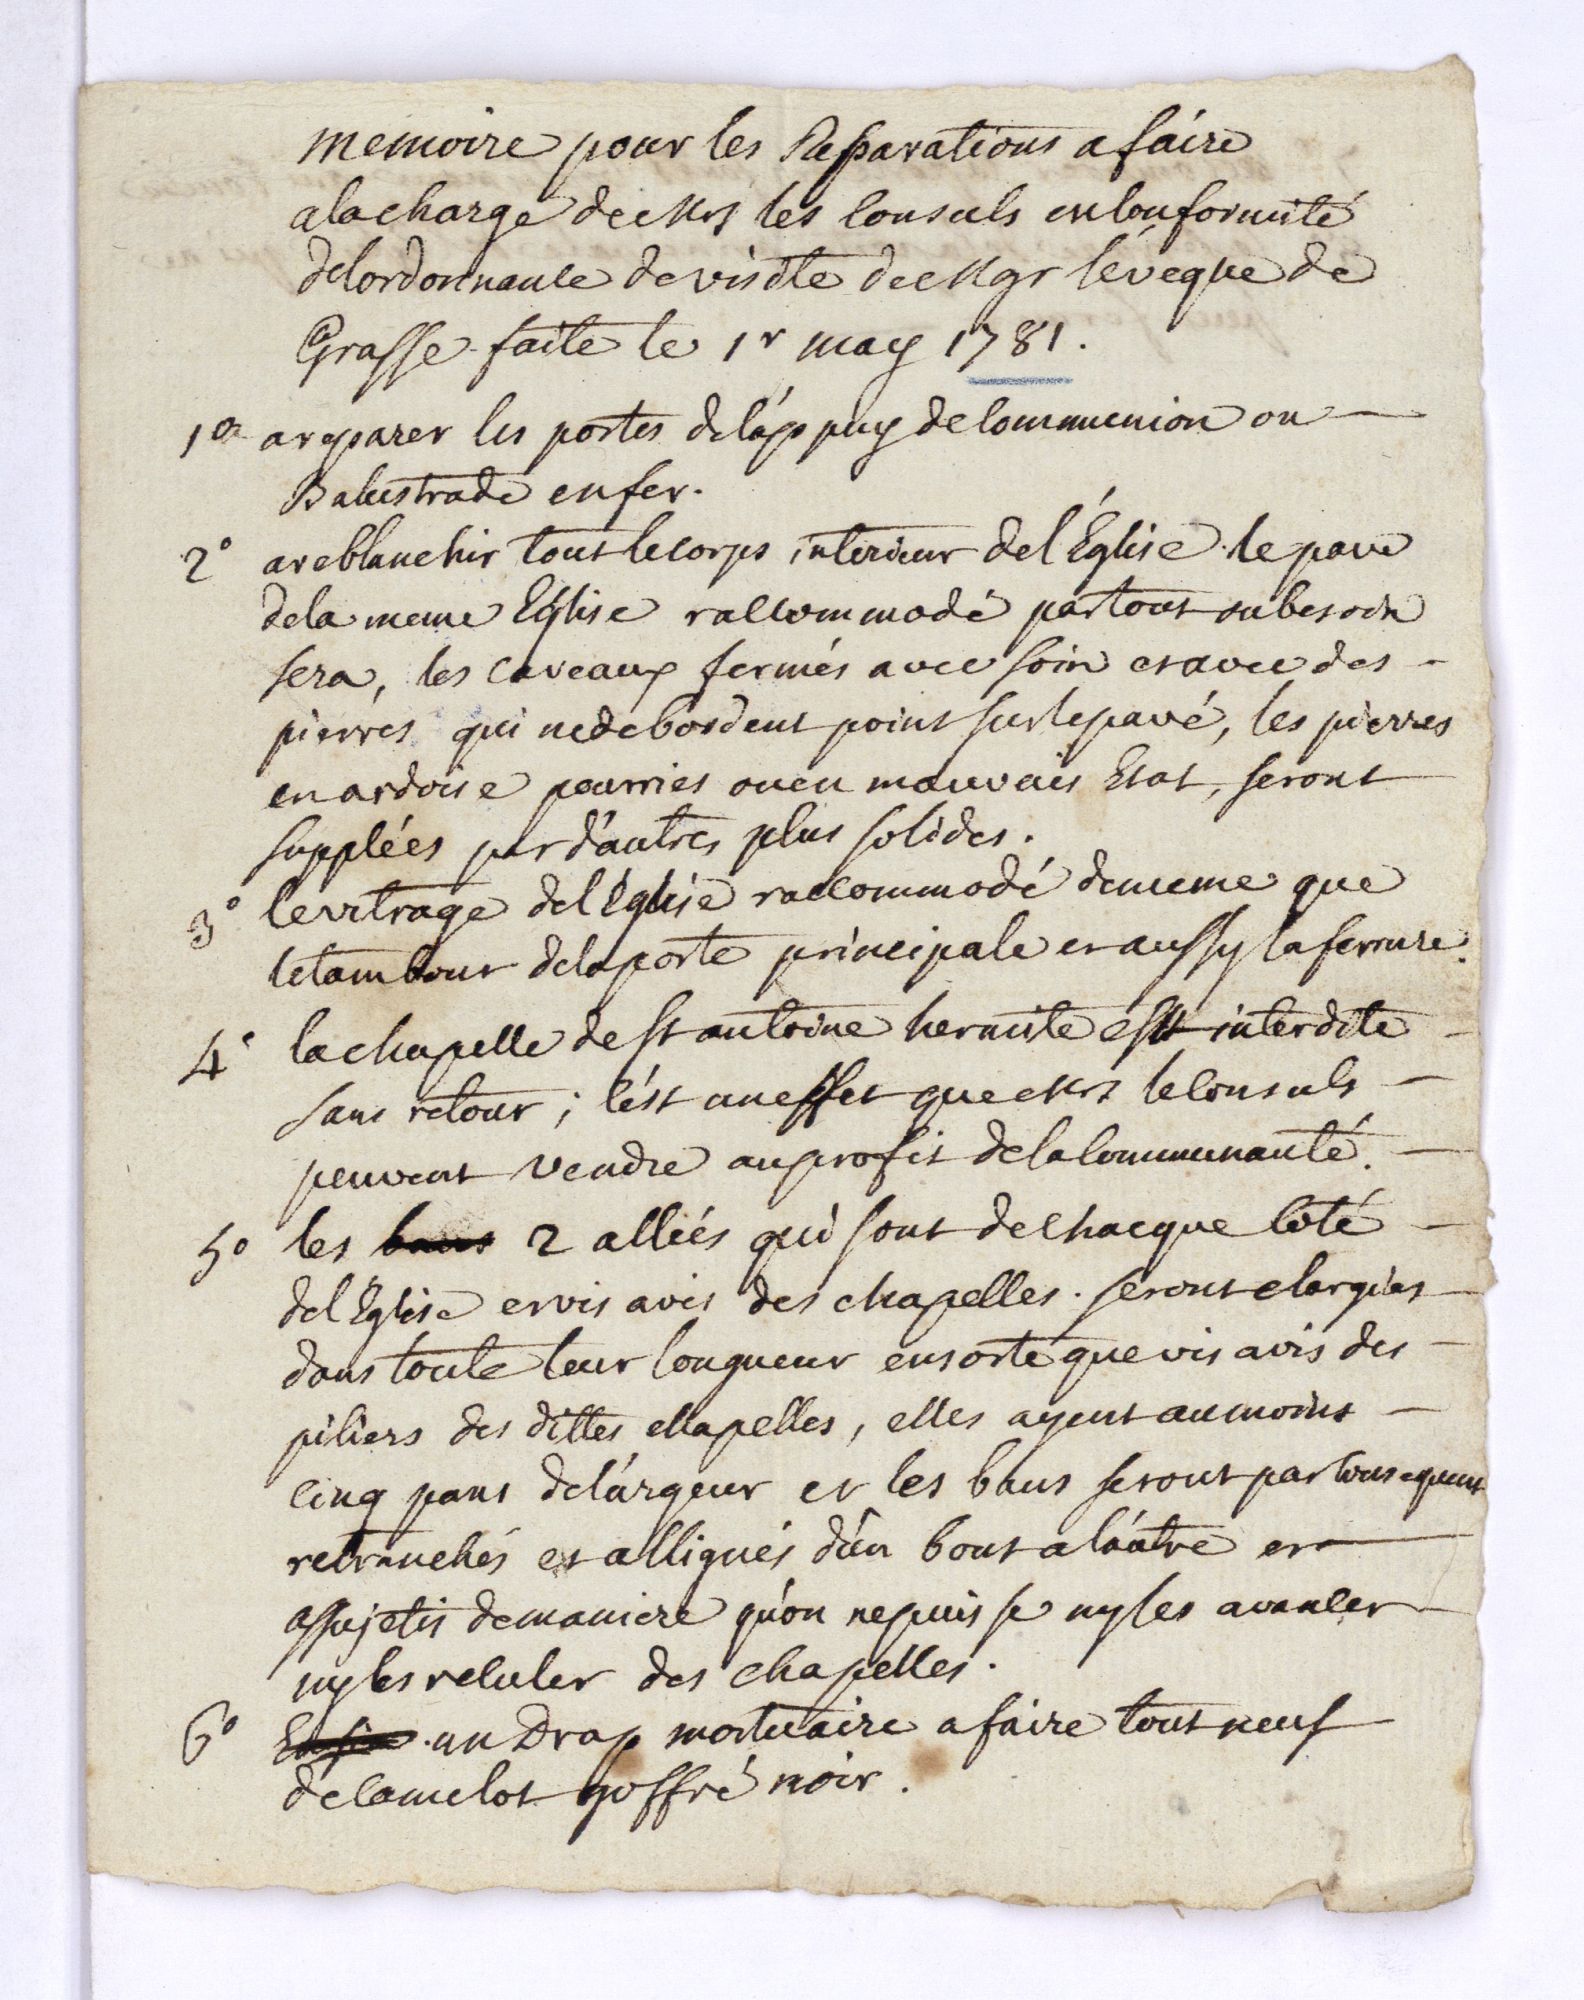 memoire pour les Reparations a faire
a la charge de Mrs les Consuls en Conformité
de lordonnance de visite de Mgr lévêque de
Grasse faite le 1r may 1781.
1o a reparer les portes de lappuy de Communion ou
Balustrade en fer.
2° a reblanchir tout le corps interieur de l'Église. le pavé
de la meme Eglise raccommodé partout ou besoin
sera, les caveaux fermés avec soin et avec des
pierres qui ne debordent point sur le pavé, les pierres
en ardoise pourries ou en mauvais Etat, seront
supplées par d'autres plus solides.
3° le vitrage de l'église raccommodé de meme que
le tambour de la porte principale et aussy la ferrure.
4° la chapelle de St antoine hermite est interdite
sans retour; c'est un effet que Mrs le Consuls
peuvent vendre au profit de la Communauté.
5° les bans 2 alleés qui sont de chacque Coté
de l'Eglise et vis avis des chapelles. seront elargies
dans toute leur longueur en sorte que vis avis des
piliers des dittes chapelles, elles ayent au moins
cinq pans de largeur et les bans seront par Consequent
retranchés et alligués d'un bout a lautre et
assujetis de maniere qu'on ne puisse ny les avancer
ny les reculer des chapelles.
6° Enfin. un Drap mortuaire a faire tout neuf
de Camelot goffré noir.